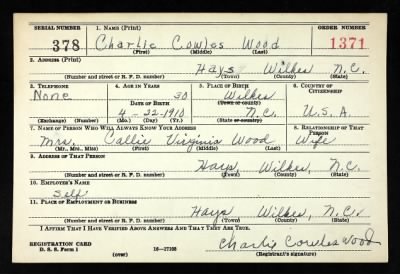 SERIAL NUMBER 1. NAME (Print) ORDER NUMBER
378 Charlie Cowles Wood 1371
(First) (Middle) (Last)
2. ADDRESS (Print)
Hays Wilkes N.C.
(Number and street or R. F. D. number) (Town) (County) (State)
3. TELEPHONE 4. AGE IN YEARS 5. PLACE OF BIRTH 6. COUNTRY OF CITIZENSHIP
None 30 Wilkes
DATE OF BIRTH (Town or county)
4-22-1910 N.C. U.S.A.
(Exchange) (Number) (Mo.) (Day) (Yr.) (State or country)
7. NAME OF PERSON WHO WILL ALWAYS KNOW YOUR ADDRESS 8. RELATIONSHIP OF THAT PERSON
Mrs. Callie Virginia Wood Wife
(Mr., Mrs., Miss) (First) (Middle) (Last)
9. ADDRESS OF THAT PERSON
Hays, Wilkes, N.C.
(Number and street or R. F. D. number) (Town) (County) (State)
10. EMPLOYER'S NAME
Self
11. PLACE OF EMPLOYMENT OR BUSINESS
Hays Wilkes, N.C.
(Number and street or R. F. D. number) (Town) (County) (State)
I AFFIRM THAT I HAVE VERIFIED ABOVE ANSWERS AND THAT THEY ARE TRUE.
REGISTRATION CARD Charlie Cowles Wood
D. S. S. Form 1 (over) 16—17105 (Registrant's signature)